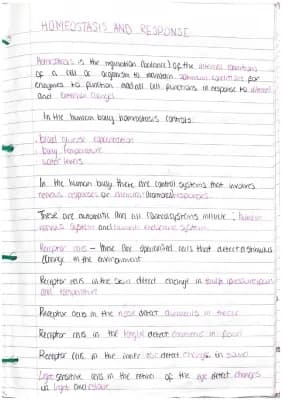 HOMEOSTASIS AND RESPONSE
Homeostasis is the regulation (balance) of the internal conditions
of a cell or organism to maintain optimum conditions for
enzymes to function and all cell functions in response to internal
and external changes
In the human body homeostasis controls:
blood glucose concentration
body temperature
water levels
In the human body there are control systems that involves
nervous responses or chemical (hormones) responses
These are automatic and all control systems include: human
nervous system and human endocrine system
Receptor cells – these are specialised cells that detect a stimulus
change in the environment
Receptor cells in the skin detect change in touch pressure pain
and temperature
Receptor cells in the nose detect chemicals in the air
Receptor cells in the tongue detect chemicals in food
Receptor cells in the inner ear detect changes in sound
Light sensitive cells in the retina of the eye detect changes
in light and colour